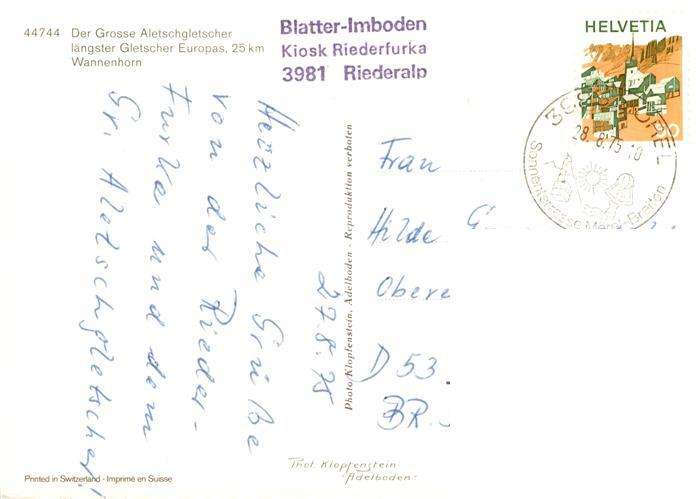 44744 Der Grosse Aletschgletscher
längster Gletscher Europas, 25 km
Wannenhorn
Blatter-Imboden
Kiosk Riederfurka
3981 Riederalp
HELVETIA
28.8.75
Sonnenterrasse
27.8.75
Herzliche Grüße
von der Rieder-
furka und dem
Gr. Aletschgletscher!
Photo/Klopfenstein, Adelboden - Reproduktion verboten
Frau
Hilde G
Obere
D 53
BR
Printed in Switzerland - Imprimé en Suisse
Phot. Klopfenstein
"Adelboden"